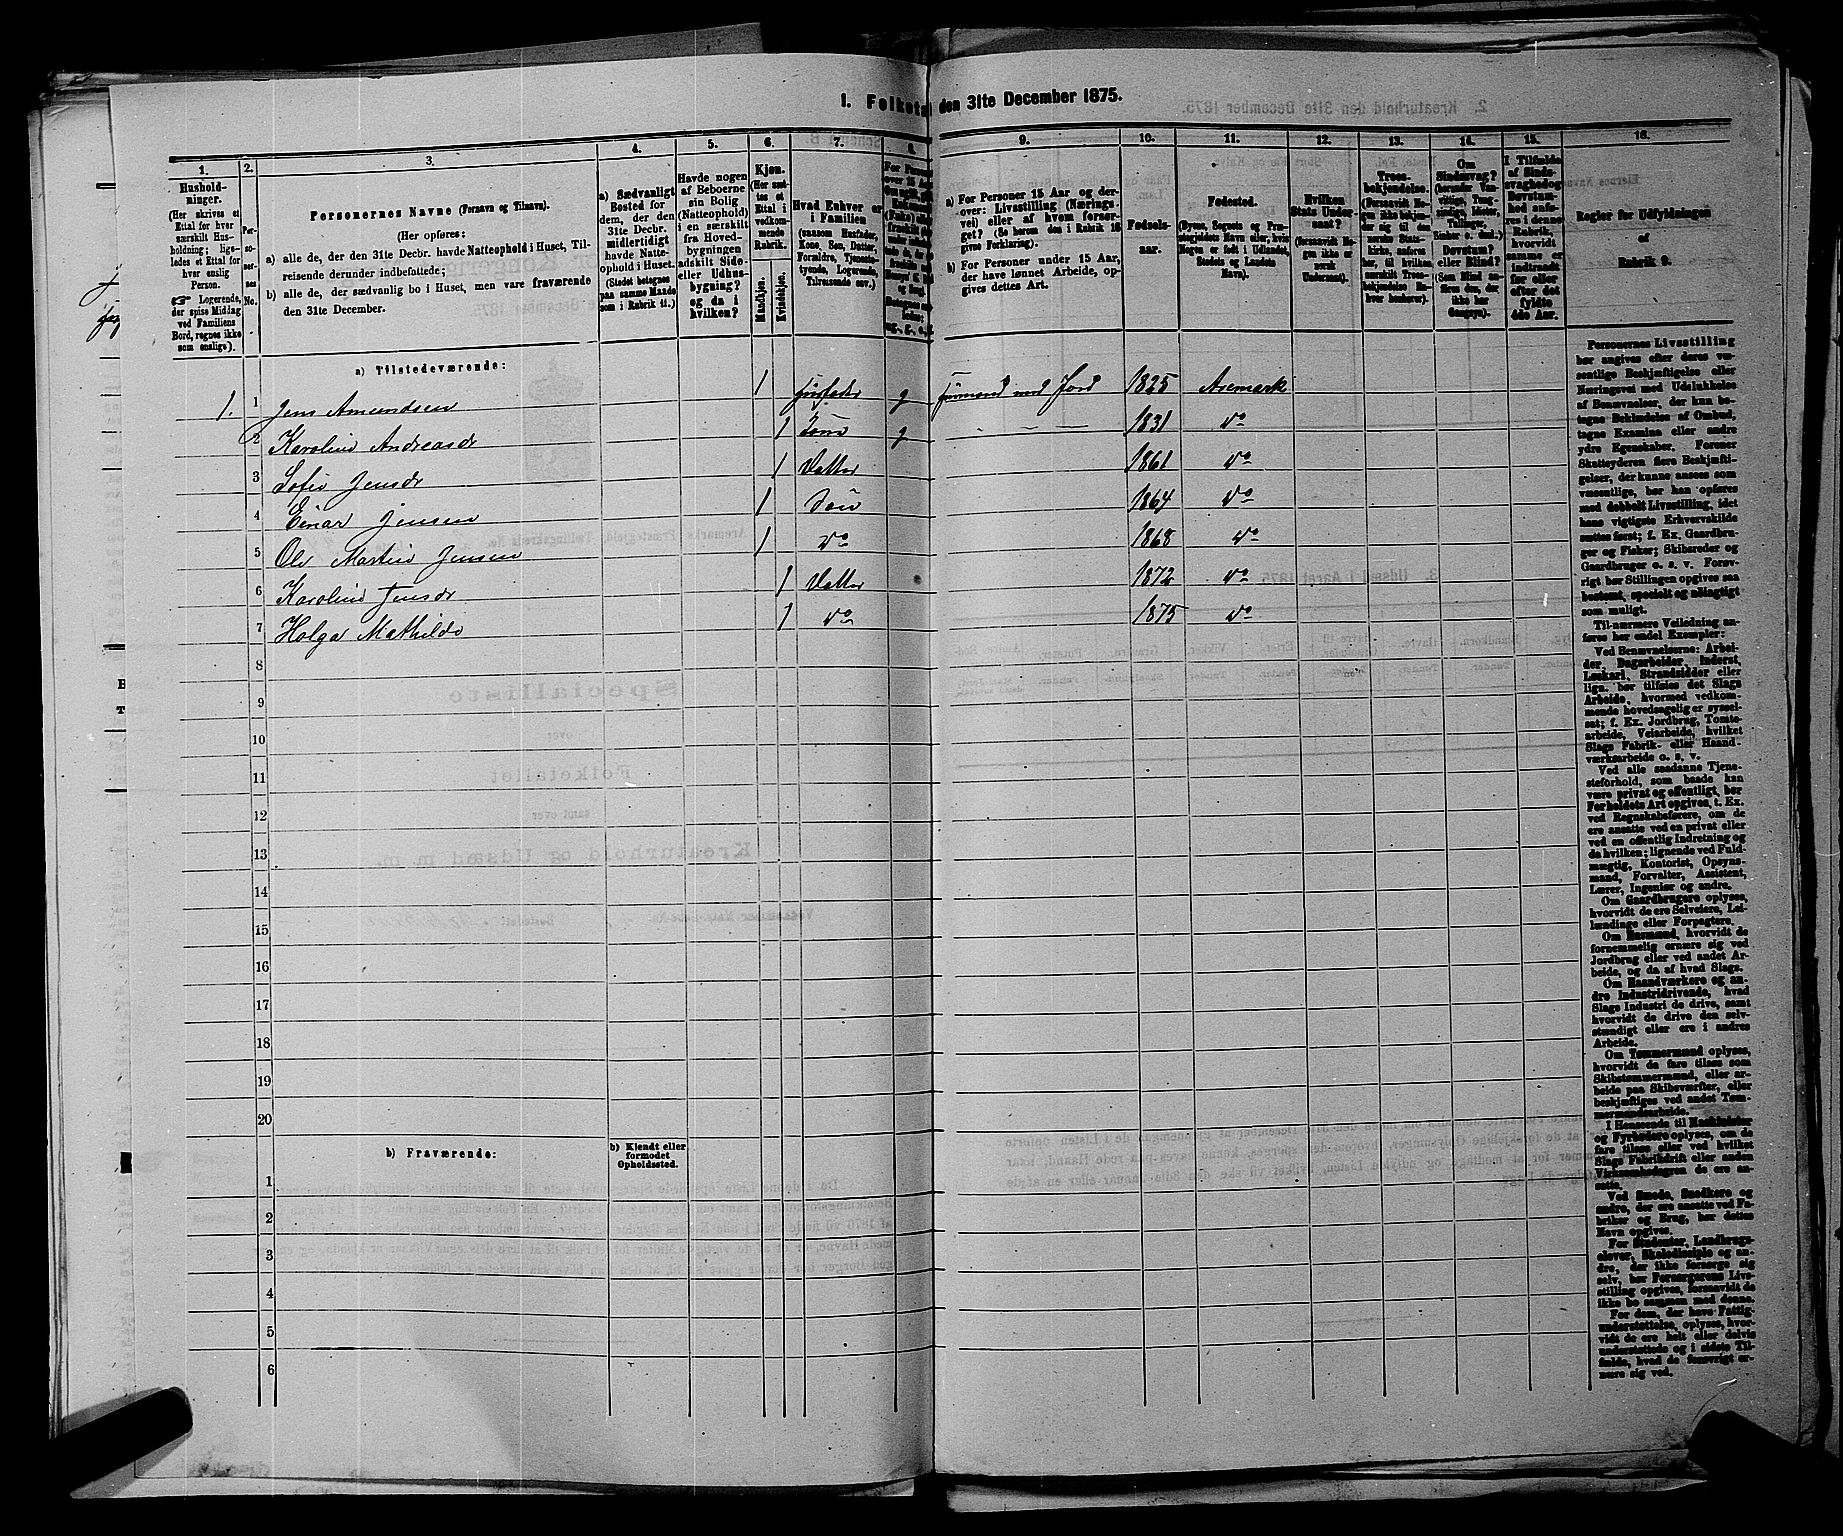 1. Folketa den 31te December 1875.
1. 2. 3. 4. 5. 6. 7. 8. 9. 10. 11. 12. 13. 14. 15. 16.
Hushold-
ninger.
(Her skrives et
Ettal for hver
særskilt Hus-
holdning; lige-
ledes et Ettal for
hver enslig
Person.
Logerende,
der spise Middag
ved Familiens
Bord, regnes ikke
som enslige).
Personernes Navne (Fornavn og Tilnavn).
(Her opføres:
a) alle de, der den 31te Decbr. havde Natteophold i Huset, Til-
reisende derunder indbefattede;
b) alle de, der sædvanlig bo i Huset, men vare fraværende
den 31te December.
a) Sædvanligt
Bosted for
dem, der den
31te Decbr.
midlertidigt
havde Natte-
ophold i Huset.
(Stedet betegnes
paa samme Maade
som i Rubrik 11.)
Havde nogen
af Beboerne
sin Bolig
(Natteophold)
i en særskilt
fra Hoved-
bygningen
adskilt Side-
eller Udhus-
bygning?
og da i
hvilken?
Kjøn.
(Her sæt-
tes et
Ettal i
vedkom-
mende
Rubrik.
Mandkjøn.
Kvindekjøn.
Hvad Enhver er
i Familien
(saasom Husfader,
Kone, Søn, Datter,
Forældre, Tjeneste-
tyende, Logerende,
Tilreisende osv.)
a) For Personer 15 Aar og der-
over: Livsstilling (Nærings-
vei) eller af hvem forsør-
get? (Se herom den i Rubrik 16
givne Forklaring).
b) For Personer under 15 Aar,
der have lønnet Arbeide, op-
gives dettes Art.
Fødsels-
aar.
Fødested.
(Byens, Sognets og Præ-
stegjeldets Navn eller, hvis
Nogen er født i Udlandet,
Stedets og Landets
Navn).
Hvilken
Stats Under-
saat?
(forsaavidt No-
gen ikke er
norsk
Undersaat).
Troes-
bekjendelse.
(Forsaavidt No-
gen ikke bekjen-
der sig til den
norske Stats-
kirke, anføres
her, til hvilken
særskilt Troes-
bekjendelse En-
hver henhører).
Om
Sindssvag?
(herunder Van-
vittige, Tung-
sindige, Idioter,
Tullinger,
Sinker o. desl.)
Døvstum?
eller Blind?
(Som Blind an-
føres den, der
ikke har
Gangsyn).
I Tilfælde
af Sinds-
svaghed og
Døvstum-
hed anfø-
res i denne
Rubrik,
hvorvidt
samme er
indtraadt
før eller
efter det
fyldte
4de Aar.
Regler for Udfyldningen
af
Rubrik 9.
a) Tilstedeværende:
1. 1 Jens Amundsen 1 Husfader g Husmand med Jord 1825 Aremark
2 Karoline Andreasdr 1 Kone g — — — 1831 do
3 Sofie Jensdr 1 Datter 1861 do
4 Einar Jensen 1 Søn 1864 do
5 Ole Martin Jensen 1 do 1868 do
6 Karoline Jensdr 1 Datter 1872 do
7 Holga Mathilde 1 do 1875 do
8
9
10
11
12
13
14
15
16
17
18
19
20
b) Fraværende:
b) Kjendt eller
formodet
Opholdssted.
1
2
3
4
5
6
Personernes Livsstilling
bør angives efter deres væ-
sentlige Beskjæftigelse eller
Næringsvei med Udelukkelse
af Benævnelser, der kun be-
tegne Beklædelse af Ombud,
tagne Examina eller andre
ydre Egenskaber. Forener
Skatteyderen flere Beskjæfti-
gelser, der kunne ansees som
væsentlige, bør han opføres
med dobbelt Livsstilling, idet
hans vigtigste Erhvervskilde
sættes først; f. Ex. Gaardbru-
ger og Fisker; Skibsreder og
Gaardbruger o. s. v. Forøv-
rigt bør Stillingen opgives saa
bestemt, specielt og nøiagtigt
som muligt.
Til nærmere Veiledning an-
føres her endel Exempler:
Ved Benævnelserne: Arbei-
der, Dagarbeider, Inderst,
Løskarl, Strandsidder eller
lign. bør tilføies det Slags
Arbeide, hvormed vedkom-
mende hovedsagelig er syssel-
sat; f. Ex. Jordbrug, Tomte-
arbeide, Veiarbeide, hvilket
Slags Fabrik- eller Haand-
værksarbeide o. s. v.
Ved alle saadanne Tjene-
steforhold, som baade kan
være privat og offentligt, bør
Forholdets Art opgives, t. Ex.
ved Regnskabsførere, om de
ere ansatte ved en privat eller
ved en offentlig Indretning og
da hvilken; lignende ved Fuld-
mægtig, Kontorist, Opsyns-
mand, Forvalter, Assistent,
Lærer, Ingeniør og andre.
Om Gaardbrugere oplyses,
hvorvidt de ere Selveiere, Lei-
lændinge eller Forpagtere.
Om Husmænd, hvorvidt de
fornemmelig ernære sig ved
Jordbrug eller ved andet Ar-
beide, og da af hvad Slags.
Om Haandværkere og an-
dre Industridrivende, hvad
Slags Industri de drive, samt
hvorvidt de drive den selv-
stændigt eller ere i andres
Arbeide.
Om Tømmermænd oplyses,
hvorvidt de fare tilsøs som
Skibstømmermænd, eller ar-
beide paa Skibsværfter, eller
beskjæftiges ved andet Tøm-
mermandsarbeide.
I Henseende til Maskinister
og Fyrbødere oplyses, om de
fare tilsøs eller ved hvilket
Slags Fabrikdrift eller anden
Virksomhed de ere an-
satte.
Ved Smede, Snedkere og
andre, der ere ansatte ved Fa-
briker og Brug, bør dettes
Navn opgives.
For Studenter, Landbrugs-
elever, Skoledisciple og an-
dre, der ikke forsørge sig
selv, bør Forsørgerens Livs-
stilling opgives, forsaavidt de
ikke bo sammen med denne.
For dem, der have Fattig-
understøttelse, oplyses, hvor-
vidt de ere helt eller delvis
understøttede og i sidste Til-
fælde, hvad de forøvrigt er-
nære sig ved.